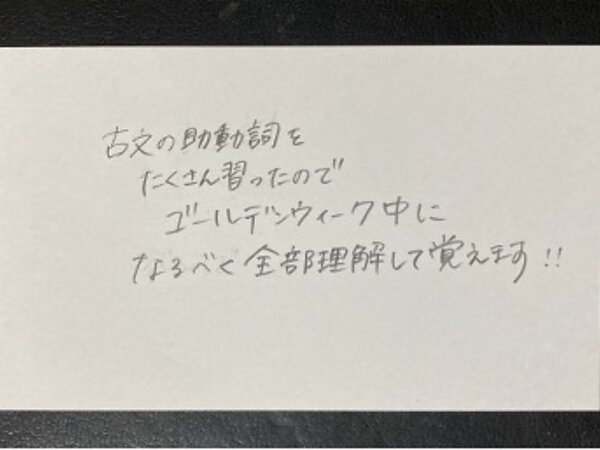 古文の助動詞を
たくさん習ったので
ゴールデンウィーク中に
なるべく全部理解して覚えます!!